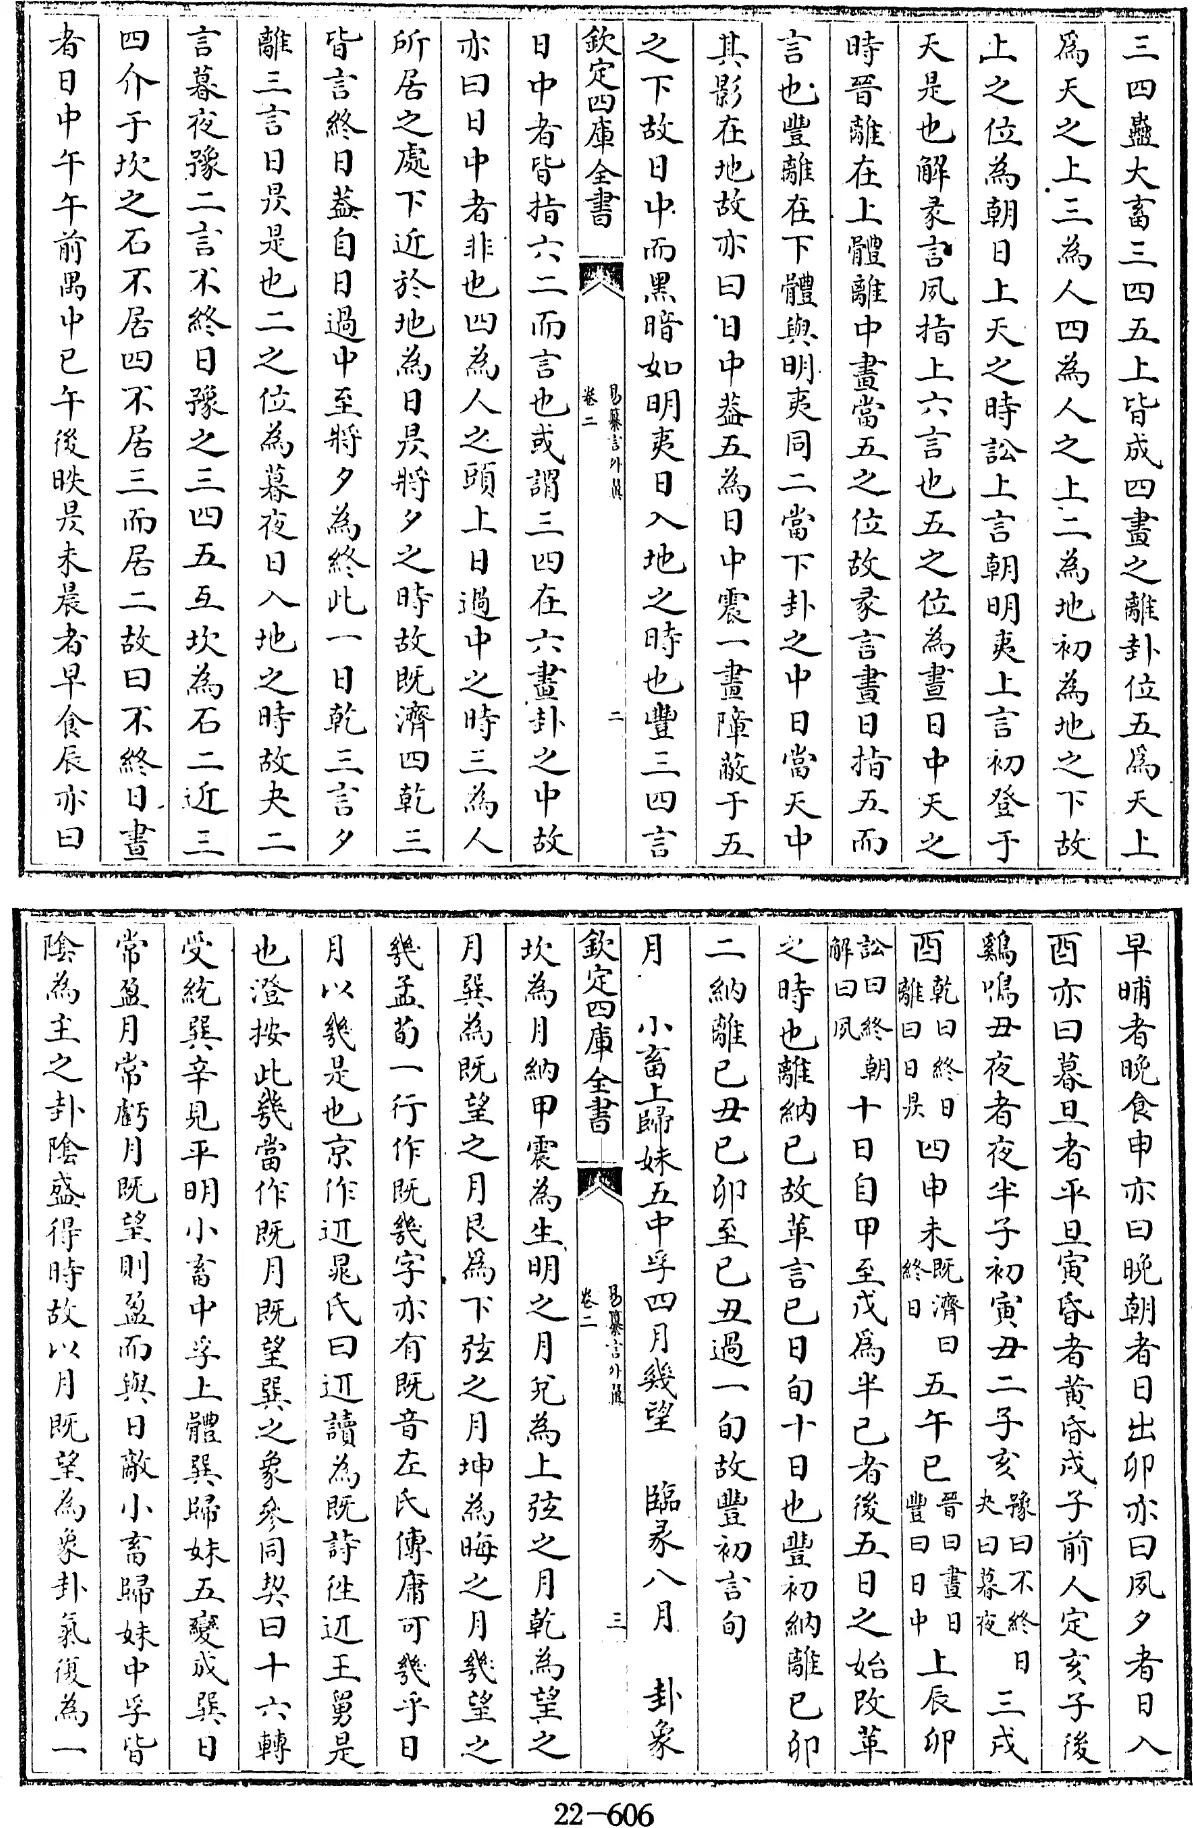 三四蠱大畜三四五上皆成四畫之離卦位五爲天上
爲天之上三為人四為人之上二為地初為地之下故
上之位為朝日上天之時訟上言朝明夷上言初登于
天是也解彖言夙指上六言也五之位為晝日中天之
時晉離在上體離中畫當五之位故彖言晝日指五而
言也豐離在下體與明夷同二當下卦之中日當天中
其影在地故亦曰日中蓋五為日中震一畫障蔽于五
之下故日中而黑暗如明夷日入地之時也豐三四言
欽定四庫全書
易纂言外翼
卷二
二
日中者皆指六二而言也或謂三四在六畫卦之中故
亦曰日中者非也四為人之頭上日過中之時三為人
所居之處下近於地為日昃將夕之時故既濟四乾三
皆言終日蓋自日過中至將夕為終此一日乾三言夕
離三言日昃是也二之位為暮夜日入地之時故夬二
言暮夜豫二言不終日豫之三四五互坎為石二近三
四介于坎之石不居四不居三而居二故曰不終日晝
者日中午午前禺中巳午後昳昃未晨者早食辰亦曰
早晡者晚食申亦曰晚朝者日出卯亦曰夙夕者日入
酉亦曰暮旦者平旦寅昏者黃昏戌子前人定亥子後
鷄鳴丑夜者夜半子初寅丑二子亥豫曰不終日夬曰暮夜三戌
酉乾曰終日離曰日昃四申未既濟曰終日五午巳晉曰晝日豐曰日中上辰卯
訟曰終朝解曰夙十日自甲至戊爲半己者後五日之始改革
之時也離納己故革言己日旬十日也豐初納離己卯
二納離己丑己卯至己丑過一旬故豐初言旬
月　小畜上歸妹五中孚四月幾望　臨彖八月　卦象
欽定四庫全書
易纂言外翼
卷二
三
坎為月納甲震為生明之月兌為上弦之月乾為望之
月巽為既望之月艮爲下弦之月坤為晦之月幾望之
幾孟荀一行作既幾字亦有既音左氏傳庸可幾乎日
月以幾是也京作近晁氏曰近讀為既詩往近王舅是
也澄按此幾當作既月既望巽之象參同契曰十六轉
受統巽辛見平明小畜中孚上體巽歸妹五變成巽日
常盈月常虧月既望則盈而與日敵小畜歸妹中孚皆
陰為主之卦陰盛得時故以月既望為象卦氣復為一
22-606